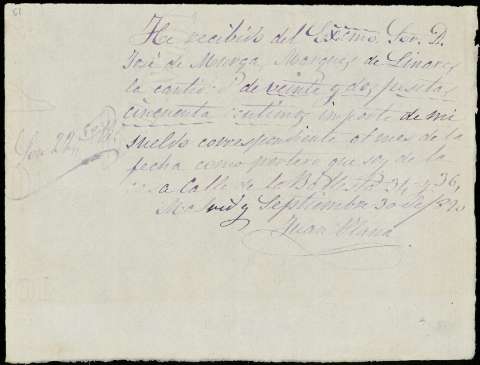 He recibido del Excmo. Sor. D.
José de Murga, Marques de Linares
la cantid.d de veinte y dos pesetas
cincuenta centimos importe de mi
sueldo correspondiente al mes de la
fecha como portero que soy de la
a Calle de la 34, y 36,
Madrid y Septiembre 30 de
Juan
Son 22,50